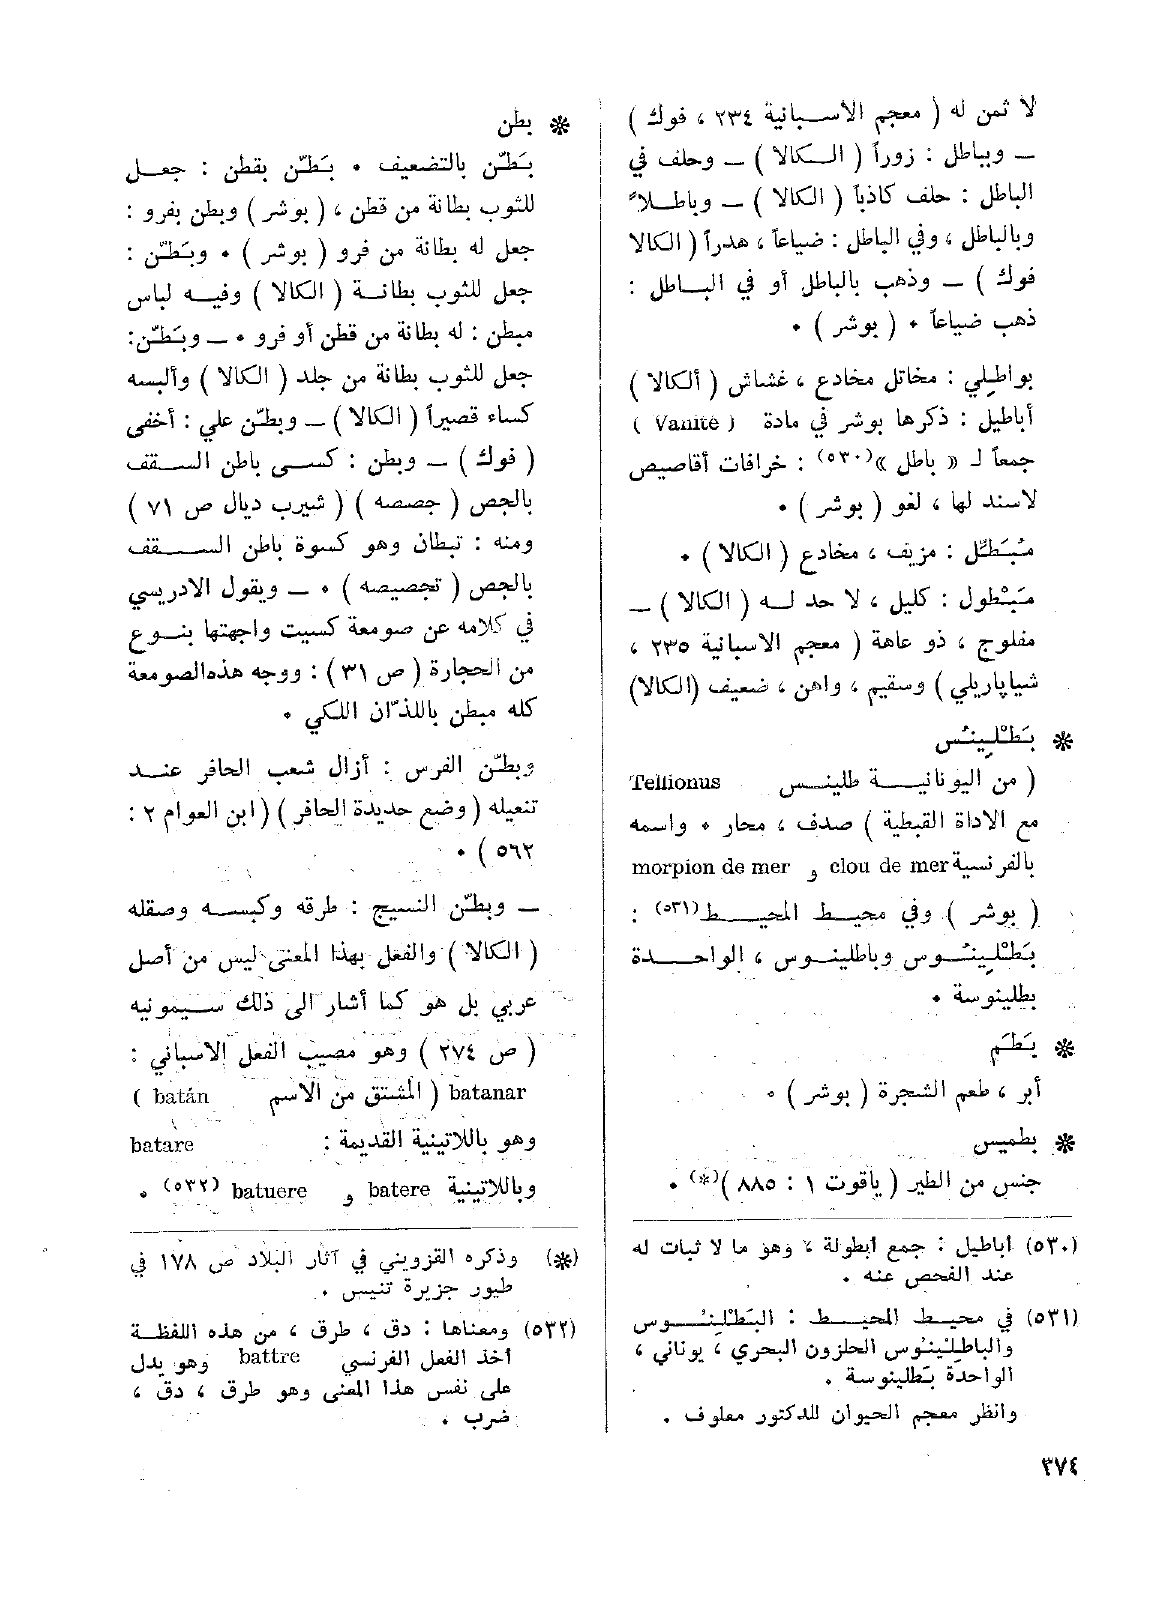 لا ثمن له ( معجم الاسبانية ٢٣٤ ، فوك )
— وبباطل : زوراً ( الكالا ) — وحلف في
الباطل : حلف كاذباً ( الكالا ) — وباطلاً
وبالباطل ، وفي الباطل : ضياعاً ، هدراً ( الكالا
فوك ) — وذهب بالباطل أو في الباطل :
ذهب ضياعاً . ( بوشر ) .
بواطِلي : مخاتل مخادع ، غشاش ( ألكالا )
أباطيل : ذكرها بوشر في مادة ( Vanité )
جمعاً لـ « باطل »(٥٣٠) : خرافات أقاصيص
لاسند لها ، لغو ( بوشر ) .
مُبَطِّل : مزيف ، مخادع ( الكالا ) .
مَبْطول : كليل ، لا حد له ( الكالا ) —
مفلوج ، ذو عاهة ( معجم الاسبانية ٢٣٥ ،
شياپاريلي ) وسقيم ، واهن ، ضعيف (الكالا)
❊ بَطْلِينُس
( من اليونانية طلينس Tellionus
مع الاداة القبطية ) صدف ، محار . واسمه
بالفرنسية clou de mer و morpion de mer
( بوشر ) وفي محيط المحيط(٥٣١) :
بَطْلِينُوس وباطلينوس ، الواحدة
بطلينوسة .
❊ بَطَّم
أبر ، طعم الشجرة ( بوشر ) .
❊ بطميس
جنس من الطير ( ياقوت ١ : ٨٨٥ )(*) .
(٥٣٠) أباطيل : جمع أبطولة ، وهو ما لا ثبات له
عند الفحص عنه .
(٥٣١) في محيط المحيط : البَطْلِينُوس
والباطلِينُوس الحلزون البحري ، يوناني ،
الواحدة بَطلينوسة .
وانظر معجم الحيوان للدكتور معلوف .
❊ بطن
بَطّن بالتضعيف . بَطّن بقطن : جعل
للثوب بطانة من قطن ، ( بوشر ) وبطن بفرو :
جعل له بطانة من فرو ( بوشر ) . وبَطّن :
جعل للثوب بطانة ( الكالا ) وفيه لباس
مبطن : له بطانة من قطن أو فرو . — وبَطّن:
جعل للثوب بطانة من جلد ( الكالا ) وألبسه
كساء قصيراً ( الكالا ) — وبطّن علي : أخفى
( فوك ) — وبطن : كسى باطن السقف
بالجص ( جصصه ) ( شيرب ديال ص ٧١ )
ومنه : تبطان وهو كسوة باطن السقف
بالجص ( تجصيصه ) . — ويقول الادريسي
في كلامه عن صومعة كسيت واجهتها بنوع
من الحجارة ( ص ٣١ ) : ووجه هذه الصومعة
كله مبطن باللذّان اللكي .
وبطّن الفرس : أزال شعب الحافر عند
تنعيله ( وضع حديدة الحافر ) ( ابن العوام ٢ :
٥٦٢ ) .
— وبطّن النسيج : طرقه وكبسه وصقله
( الكالا ) والفعل بهذا المعنى ليس من أصل
عربي بل هو كما أشار الى ذلك سيمونيه
( ص ٢٧٤ ) وهو مصيب الفعل الاسباني :
batanar ( المشتق من الاسم batán )
وهو باللاتينية القديمة : batare
وباللاتينية batere و batuere (٥٣٢) .
(*) وذكره القزويني في آثار البلاد ص ١٧٨ في
طيور جزيرة تنيس .
(٥٣٢) ومعناها : دق ، طرق ، من هذه اللفظة
أخذ الفعل الفرنسي battre وهو يدل
على نفس هذا المعنى وهو طرق ، دق ،
ضرب .
٣٧٤